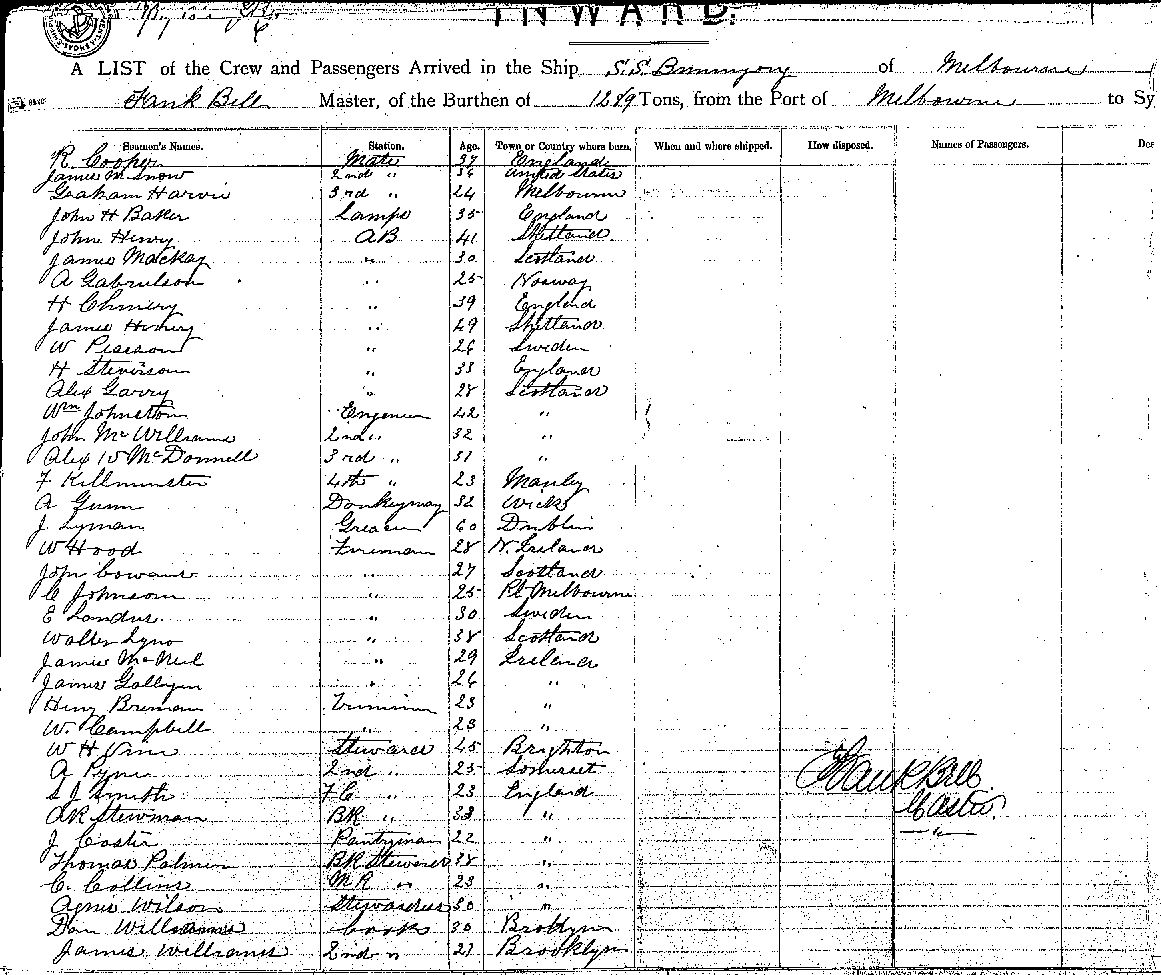 INWARD.
A LIST of the Crew and Passengers Arrived in the Ship S.S. Buninyong of Melbourne
Frank Bell Master, of the Burthen of 1289 Tons, from the Port of Melbourne to Sy
Seamen's Names. Station. Age. Town or Country where born. When and where shipped. How disposed. Names of Passengers. Des
R. Cooper Mate 37 England
James McSnow 2nd " 36 United States
Graham Harvie 3rd " 24 Melbourne
John H Baker Lamps 35 England
John Henry AB 41 Shetland
James Mackay " 30 Scotland
A Gabrielson " 25 Norway
H " 39 England
James Henry " 49 Shetland
W Pearson " 26 Sweden
H Stevenson " 33 England
Alex Garry " 28 Scotland
Wm Johnston Engineer 42 "
John McWilliams 2nd " 32 "
Alex McDonnell 3rd " 31 "
F Killminster 4th " 23 Manley
A Gunn Donkeyman 32 Wick
J. Lyman Greaser 60 Dublin
W Hood Fireman 28 N. Ireland
John Cowans " 27 Scotland
C Johnson " 25 Pt Melbourne
E Landus " 30 Sweden
Walter " 38 Scotland
James McNeil " 29 Ireland
James " 26 "
Henry Brennan Trimmer 23 "
W. Campbell " 23 "
W H Steward 45 Brighton
A Pyne 2nd " 25 Somerset
S J Smith FC " 23 England
Frank Bell
A R Stewman BR " 33 "
J. Coster Pantryman 22 "
Thomas Palmer BR Steward 38 "
C. Collins MR " 23 "
Agnes Wilson Stewardess 30 "
Dan Williams Cook 30 Brooklyn
James Williams 2nd " 21 Brooklyn